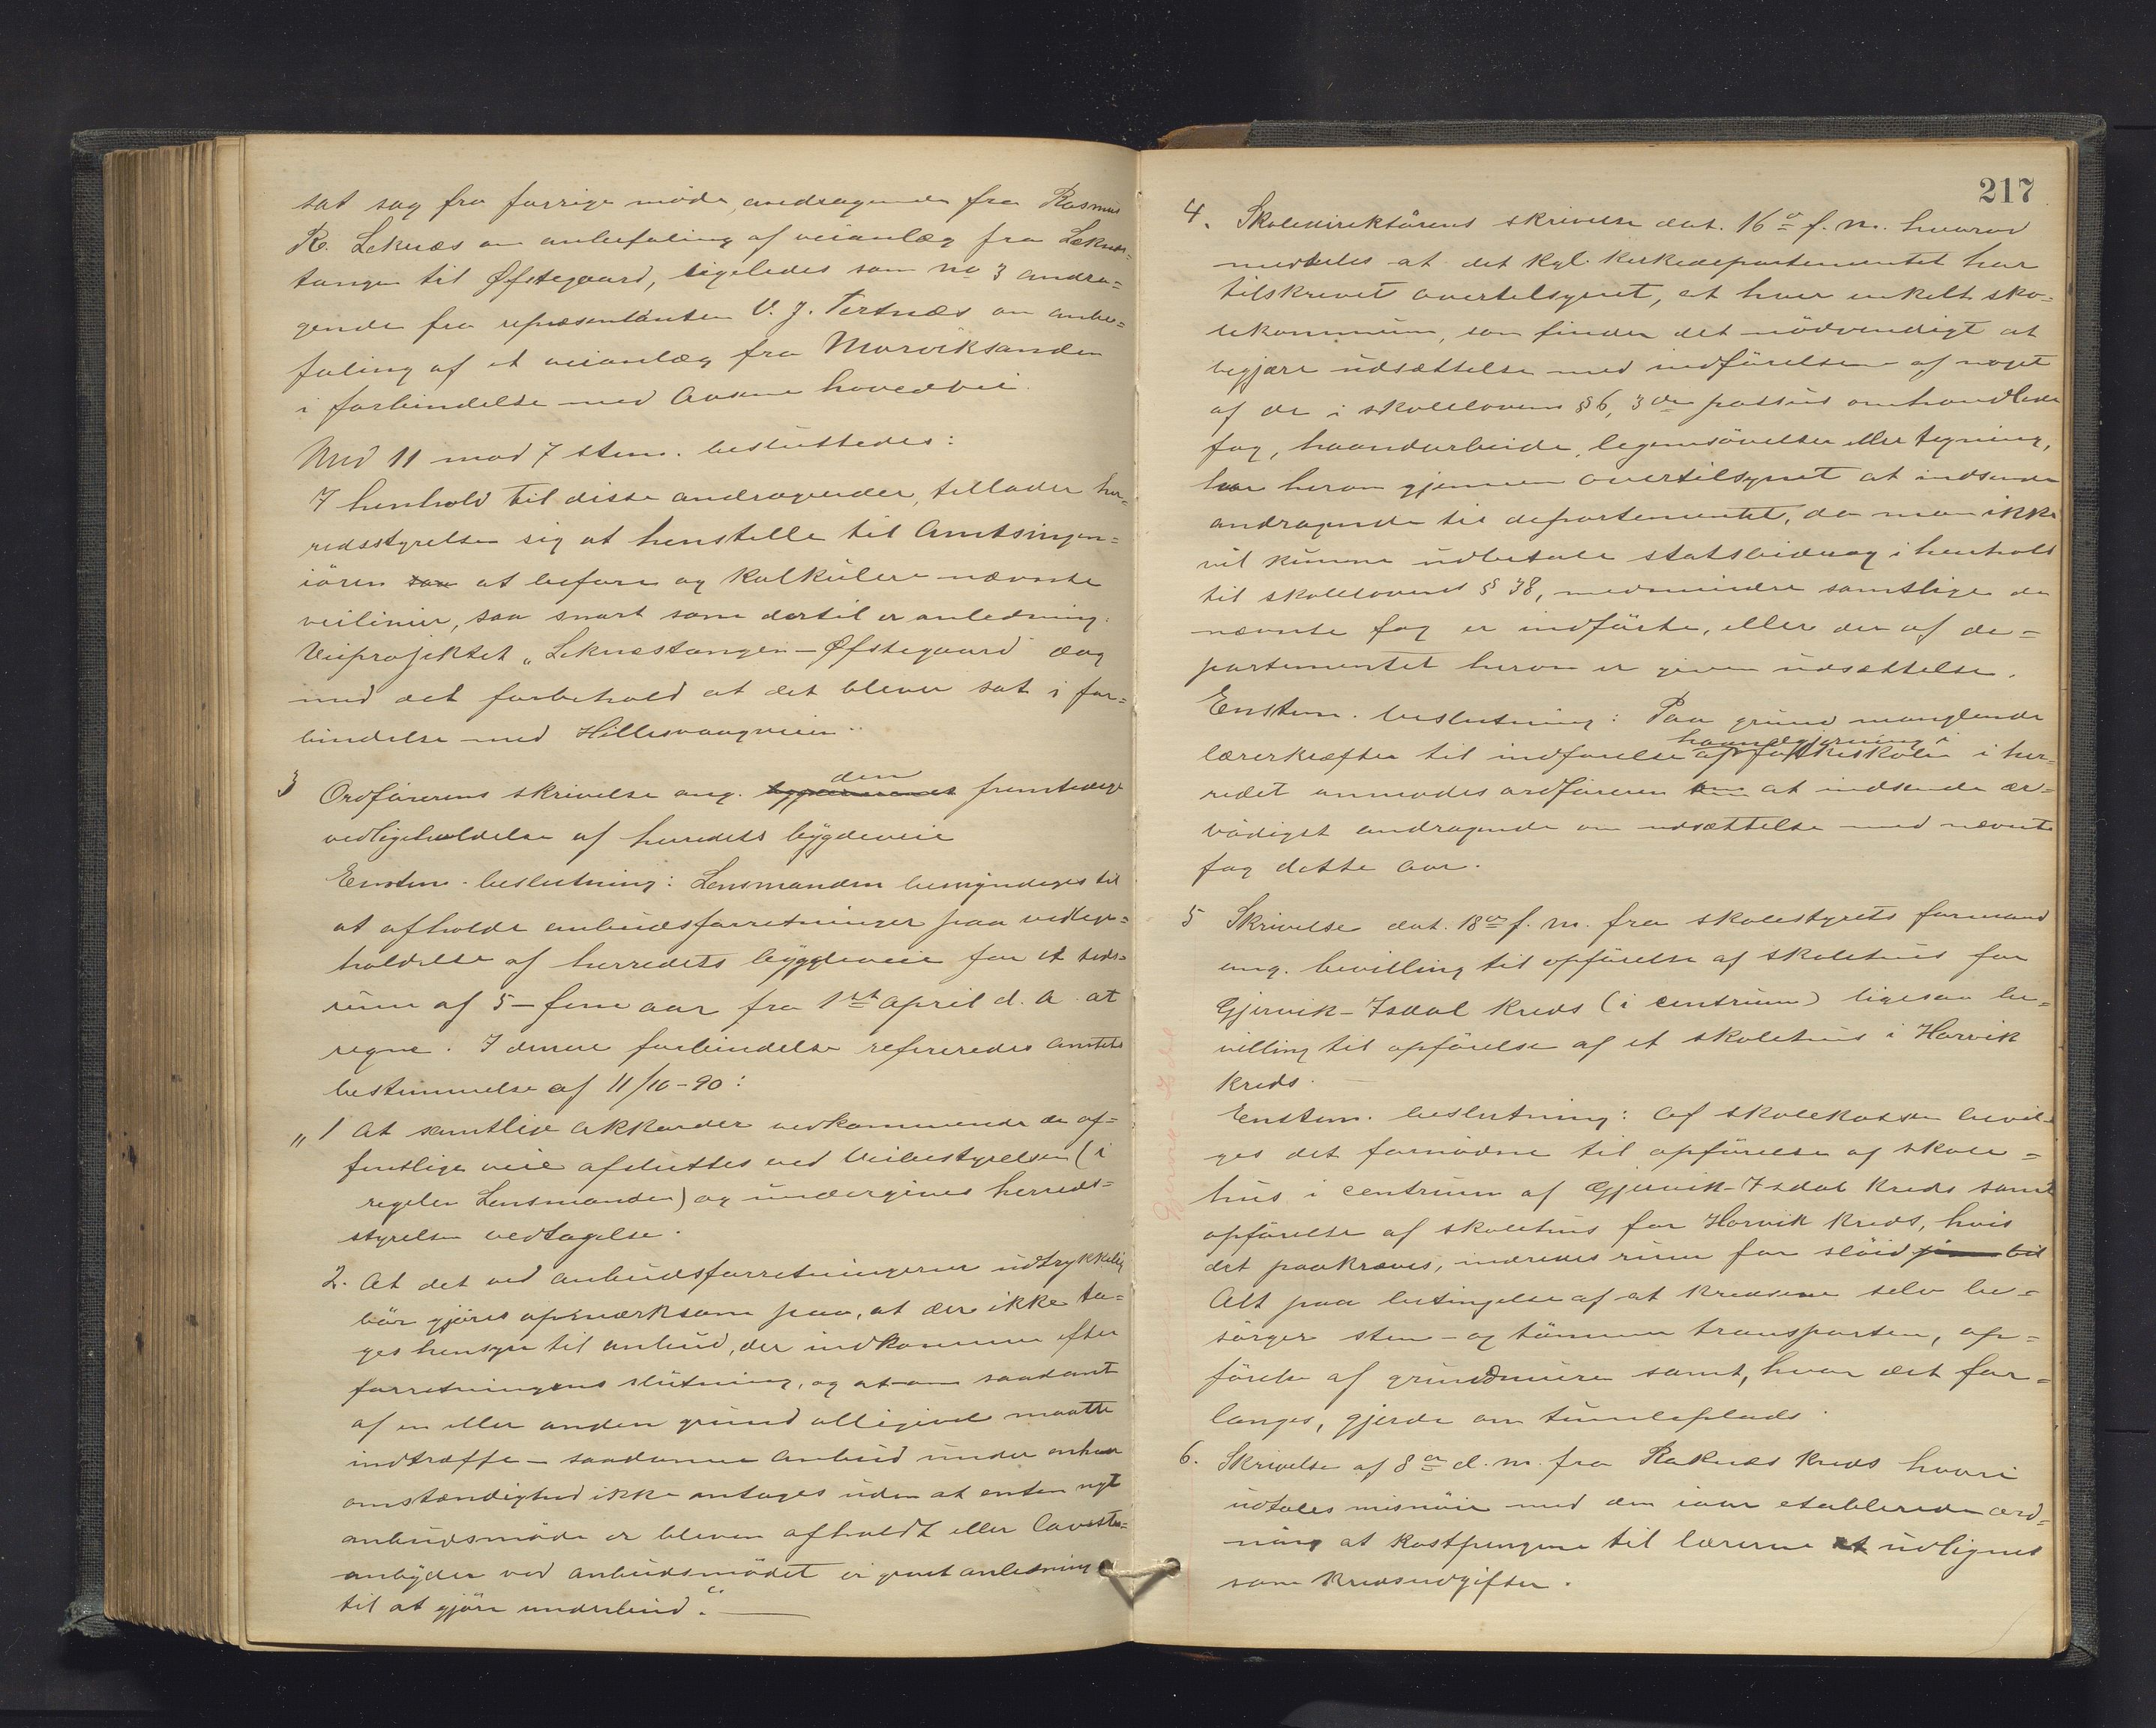 sat sag fra forrige möde, andragende fra Rasmus
R. Leknæs om anbefaling af veianlæg fra Leknæs-
tangen til Øfstegaard, ligeledes som no 3 andra=
gende fra repræsentanten V. J. Tertnæs om anbe=
faling af et veianlæg fra Morviksanden
i forbindelse med Aasene hovedvei.
Med 11 mod 7 stem. besluttedes:
I henhold til disse andragender, tillader her-
redsstyrelsen sig at henstille til Amtsingen=
iören at befare og kalkulere nævnte
veilinier, saa snart som dertil er anledning.
Veiprojektet „Leknæstangen – Øfstegaard dog
med det forbehold at det bliver sat i for=
bindelse med Hillesvaagveien.
3 Ordförerens skrivelse ang. den fremtidige
vedligeholdelse af herredets bygdeveie
Enstem. beslutning: Lensmanden bemyndiges til
at afholde anbudsforretninger paa vedlige=
holdelse af herredets bygdeveie for et tids-
rum af 5 – fem aar fra 1st April d. A. at
regne. I denne forbindelse refereredes Amtets
bestemmelse af 11/10 – 90:
„ 1 At samtlige akkorder vedkommende de of=
fentlige veie afsluttes ved Veibestyrelsen (i
regelen Lensmanden) og undergives herreds=
styrelsen vedtagelse.
2. At det ved anbudsforretningerne udtrykkelig
bör gjöres opmærksom paa, at der ikke ta=
ges hensyn til anbud, der indkommer efter
forretningens slutning, og at om saadant
af en eller anden grund alligevel maatte
indtræffe – saadanne anbud under enhver
omstændighed ikke antages uden at enten nyt
anbudsmöde er bleven afholdt eller lavest=
anbyder ved anbudsmödet er givet anledning
til at gjöre underbud.“
217
4. Skoledirektörens skrivelse dat. 16de f. m. hvorved
meddeles at det kgl. kirkedepartementet har
tilskrevet overtilsynet, at hver enkelt sko=
lekommune, som finder det nödvendigt at
begjære udsættelse med indförelsen af noget
af de i skolelovens § 6, 3die passus omhandlede
fag, haandarbeide, legemsövelser eller tegning,
har herom gjennem overtilsynet at indsende
andragende til departementet, da man ikke
vil kunne udbetale statsbidrag i henhold
til skolelovens § 38, medmindre samtlige de
nævnte fag er indförte, eller der af de=
partementet herom er given udsættelse.
Enstem. beslutning: Paa grund manglende
lærerkræfter til indförelse af haandgjerning i folkeskolen i her-
redet anmodes ordföreren at indsende ær=
bödigst andragende om udsættelse med nævnte
fag dette aar.
5 Skrivelse dat. 18de f. m. fra skolestyrets formand
ang. bevilling til opförelse af skolehus for
Gjervik – Isdal kreds (i centrum) ligesaa be=
villing til opförelse af et skolehus i Horvik
kreds.
Enstem. beslutning: Af skolekassen bevil-
ges det fornödne til opförelse af skole=
hus i centrum af Gjervik – Isdal kreds samt
opförelse af skolehus for Horvik kreds, hvis
det paakræves, indredes rum for slöid
Alt paa betingelse af at kredsene selv be=
sörger sten – og tömmer transporten, op=
förelse af grundmuren samt, hvor det for=
langes, gjerde om tunleplads.
6. Skrivelse af 8de d. m. fra Raknes kreds hvori
udtales misnöie med den iaar etablerede ord=
ning at kostpengene til lærerne udlignes
som kredsudgifter.